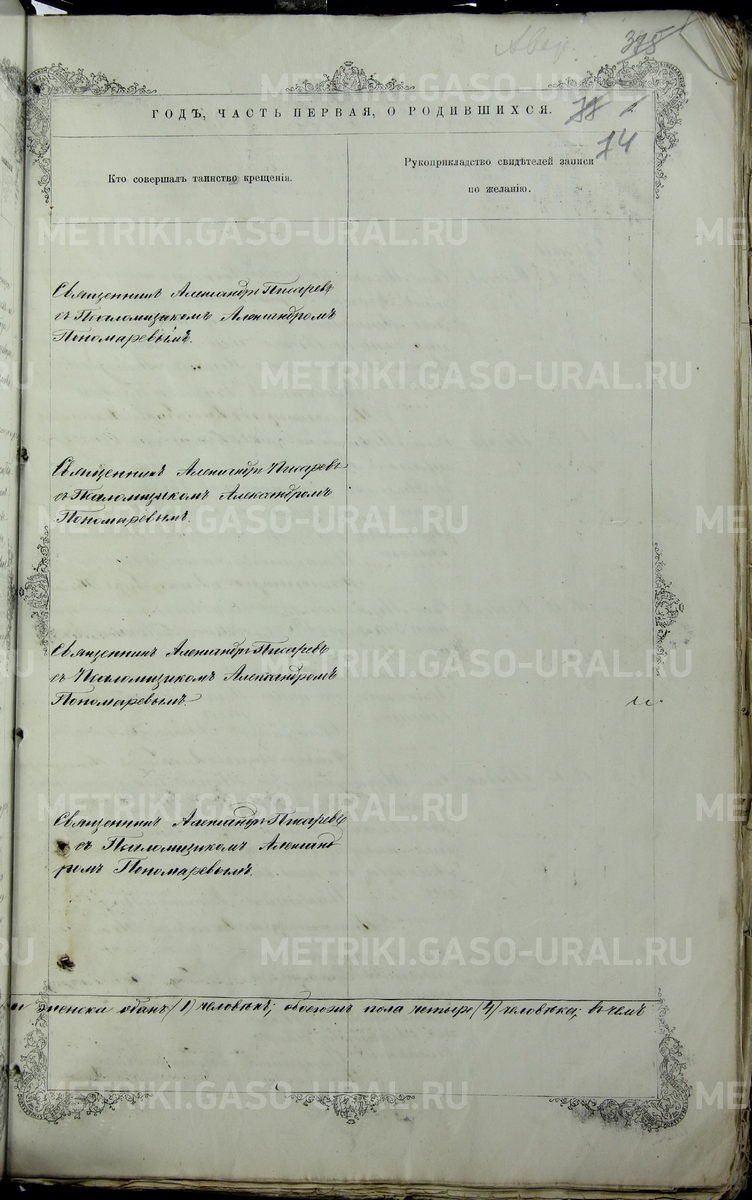 375
ГОДЪ, ЧАСТЬ ПЕРВАЯ, О РОДИВШИХСЯ.
74
Кто совершалъ таинство крещенія.
Рукоприкладство свидѣтелей записи
по желанію.
Священникъ Александръ Писаревъ
съ Псаломщикомъ Александромъ
Пономаревымъ.
Священникъ Александръ Писаревъ
съ Псаломщикомъ Александромъ
Пономаревымъ.
Священникъ Александръ Писаревъ
съ Псаломщикомъ Александромъ
Пономаревымъ.
Священникъ Александръ Писаревъ
съ Псаломщикомъ Александ
ромъ Пономаревымъ.
женска одинъ /1/ человѣкъ; обоего пола четыре /4/ человѣка; въ чемъ
METRIKI.GASO-URAL.RU